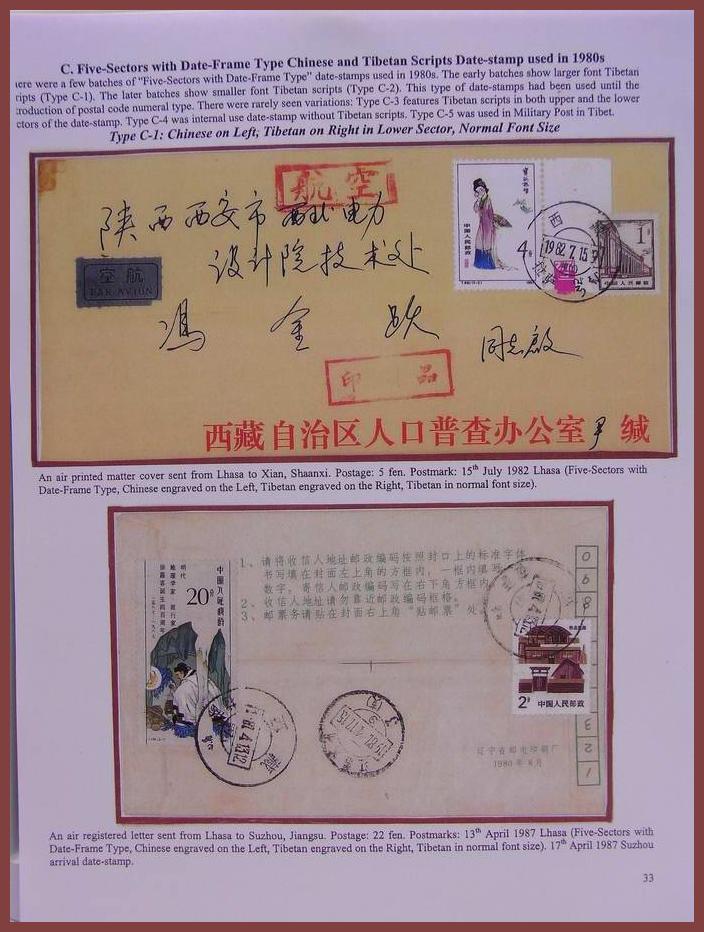 C. Five-Sectors with Date-Frame Type Chinese and Tibetan Scripts Date-stamp used in 1980s
ere were a few batches of "Five-Sectors with Date-Frame Type" date-stamps used in 1980s. The early batches show larger font Tibetan
ripts (Type C-1). The later batches show smaller font Tibetan scripts (Type C-2). This type of date-stamps had been used until the
roduction of postal code numeral type. There were rarely seen variations: Type C-3 features Tibetan scripts in both upper and the lower
ctors of the date-stamp. Type C-4 was internal use date-stamp without Tibetan scripts. Type C-5 was used in Military Post in Tibet.
Type C-1: Chinese on Left, Tibetan on Right in Lower Sector, Normal Font Size
航空
陕西西安市西北电力
设计院技术处
空航
PAR AVION
冯金跃
同志启
中国人民邮政
4分
西
1982.7.15
1
中国人民邮政
印品
西藏自治区人口普查办公室 缄
An air printed matter cover sent from Lhasa to Xian, Shaanxi. Postage: 5 fen. Postmark: 15th July 1982 Lhasa (Five-Sectors with
Date-Frame Type, Chinese engraved on the Left, Tibetan engraved on the Right, Tibetan in normal font size).
中国人民邮政
20分
明代
地理学家 旅行家
徐霞客诞生四百周年
1、请将收信人地址邮政编码按照封口上的标准字体
书写填在封面左上角的方框内，一框内填写
数字，寄信人邮政编码写在右下角方框内
2、收信人地址请勿靠近邮政编码框格。
3、邮票务请贴在封面右上角“贴邮票”处
2分
中国人民邮政
西藏
江苏
辽宁省邮电印刷厂
1980年8月
0
9
8
3
2
1
An air registered letter sent from Lhasa to Suzhou, Jiangsu. Postage: 22 fen. Postmarks: 13th April 1987 Lhasa (Five-Sectors with
Date-Frame Type, Chinese engraved on the Left, Tibetan engraved on the Right, Tibetan in normal font size). 17th April 1987 Suzhou
arrival date-stamp.
33